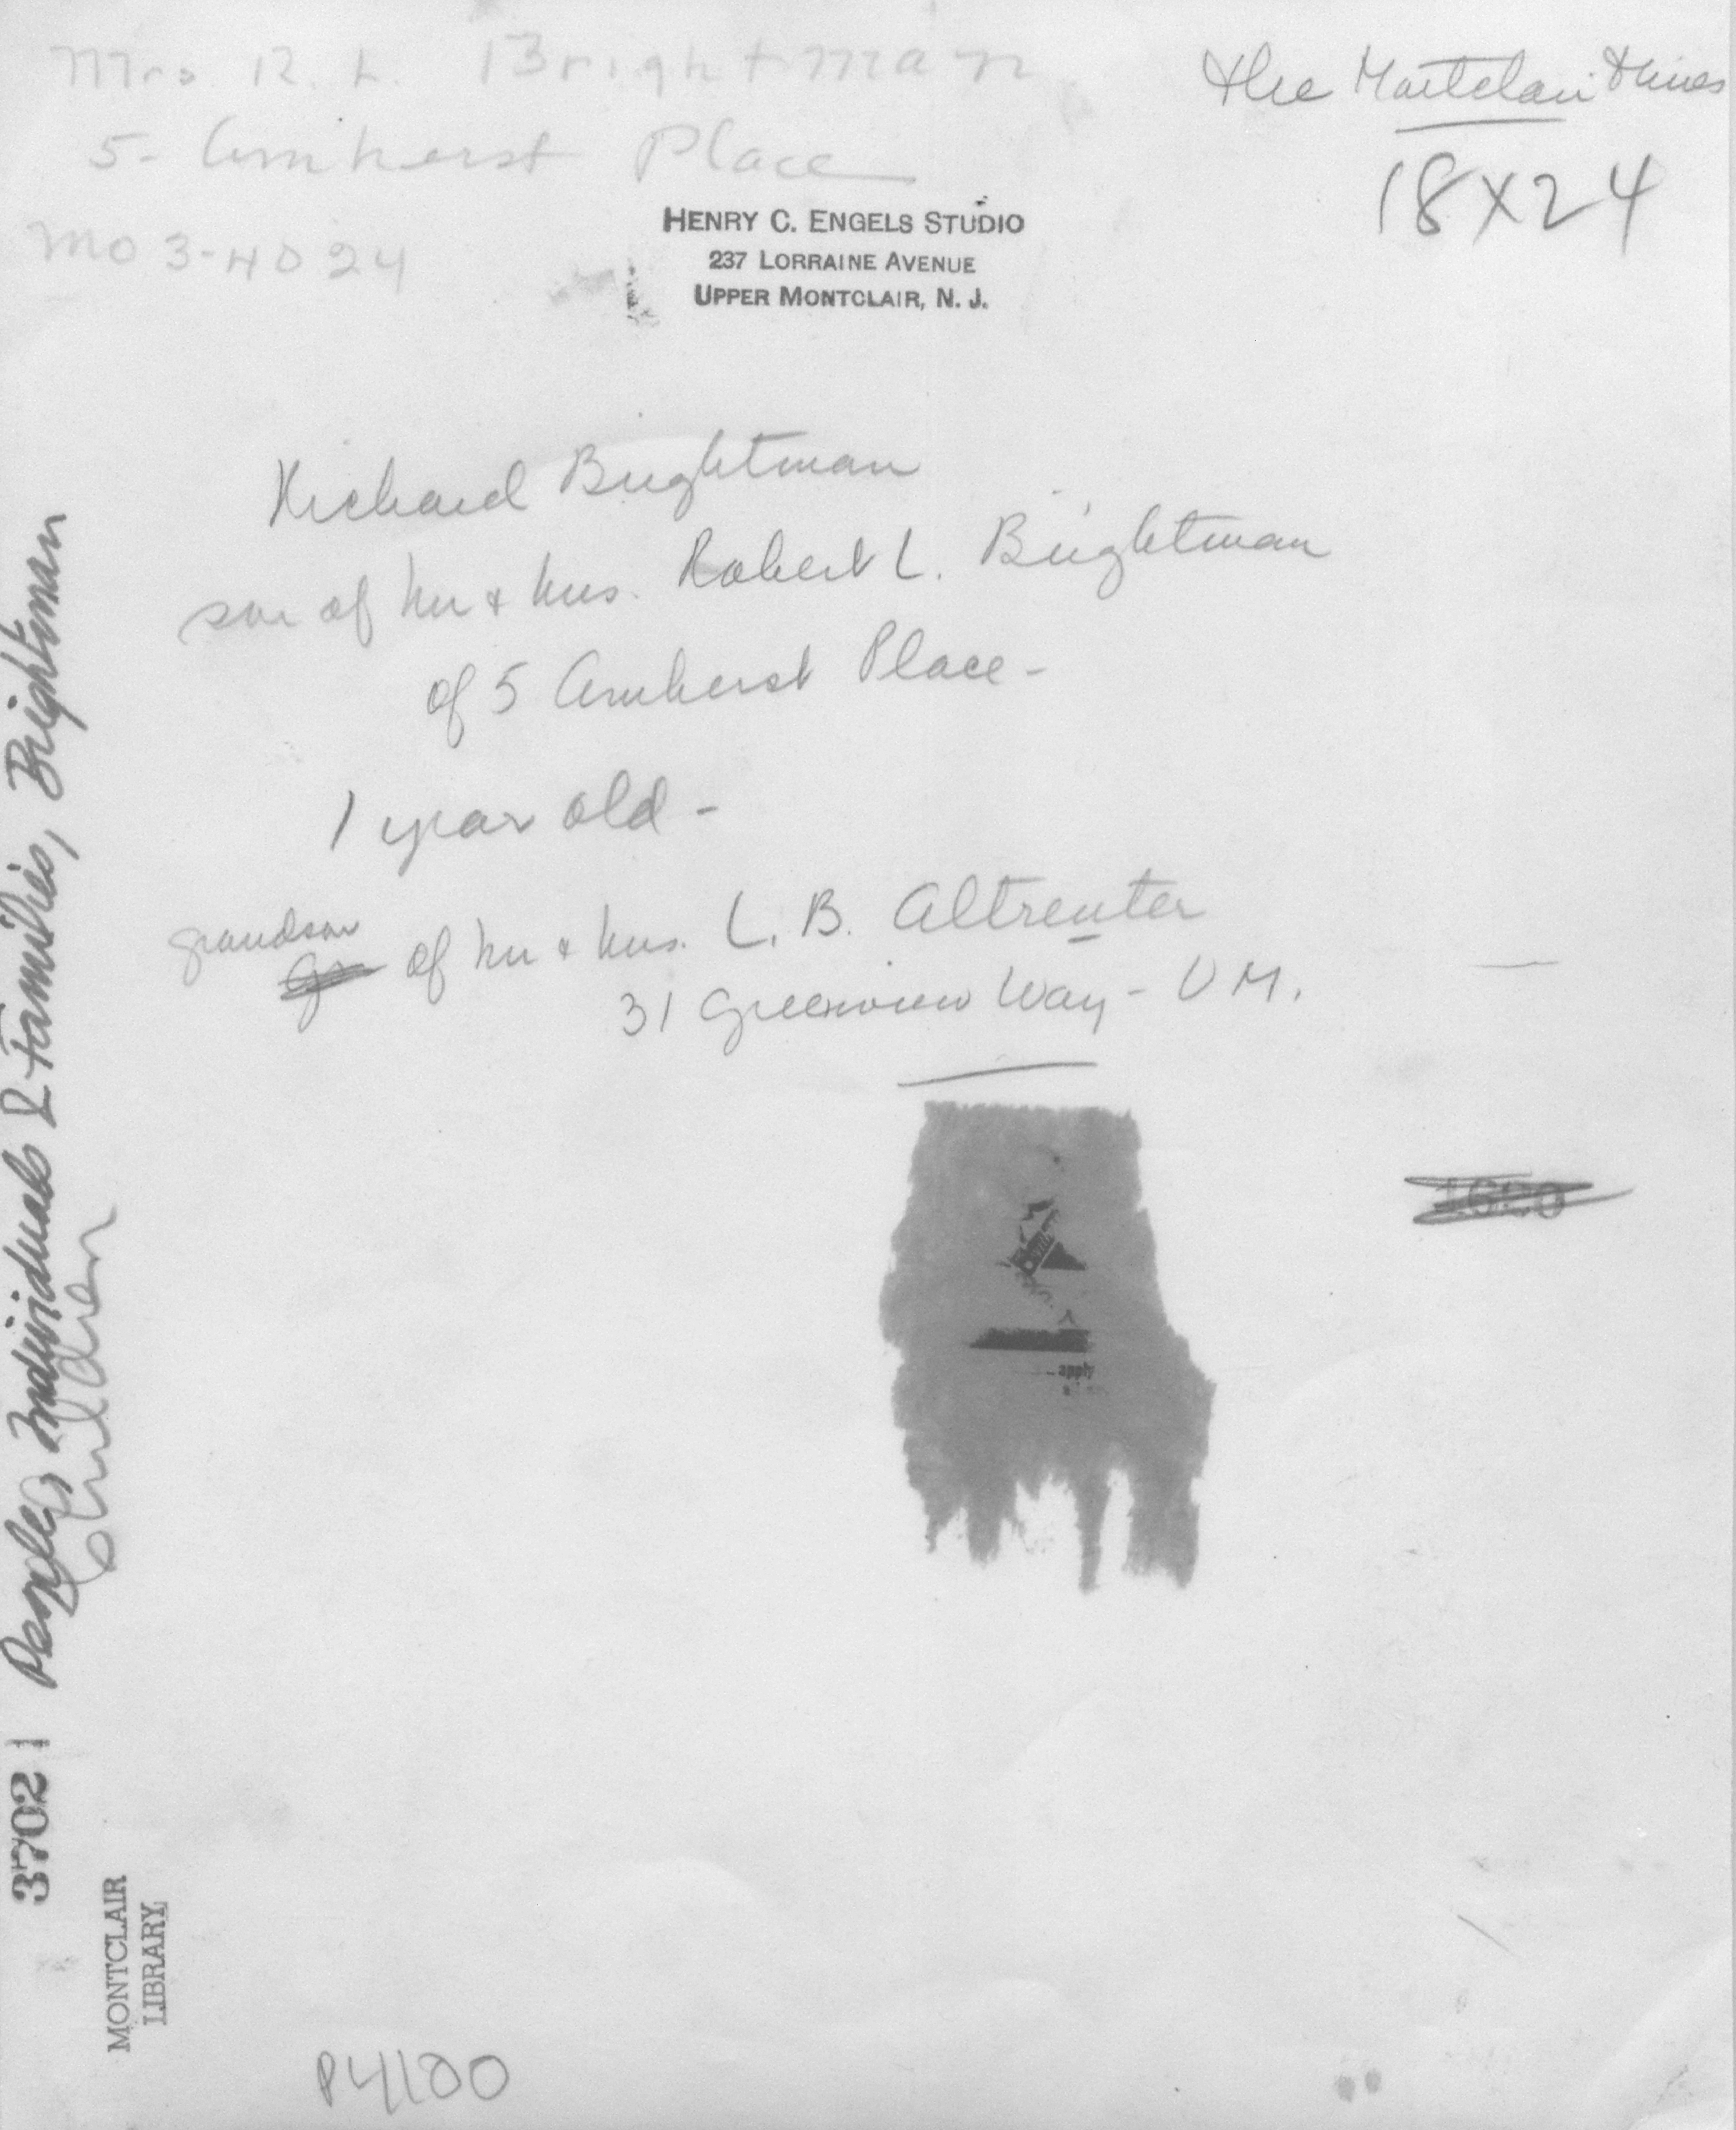 Mrs R. L. Brightman
5- Amherst Place
MO 3-4024
The Montclair Times
18x24
HENRY C. ENGELS STUDIO
237 LORRAINE AVENUE
UPPER MONTCLAIR, N. J.
Richard Brightman
son of Mr & Mrs. Robert L. Brightman
of 5 Amherst Place-
1 year old-
grandson of Mr & Mrs. L. B. Altreuter
31 Greenview Way - U M.
apply
People, Individuals & Families, Brightman
Children
3702
MONTCLAIR
LIBRARY
P4100